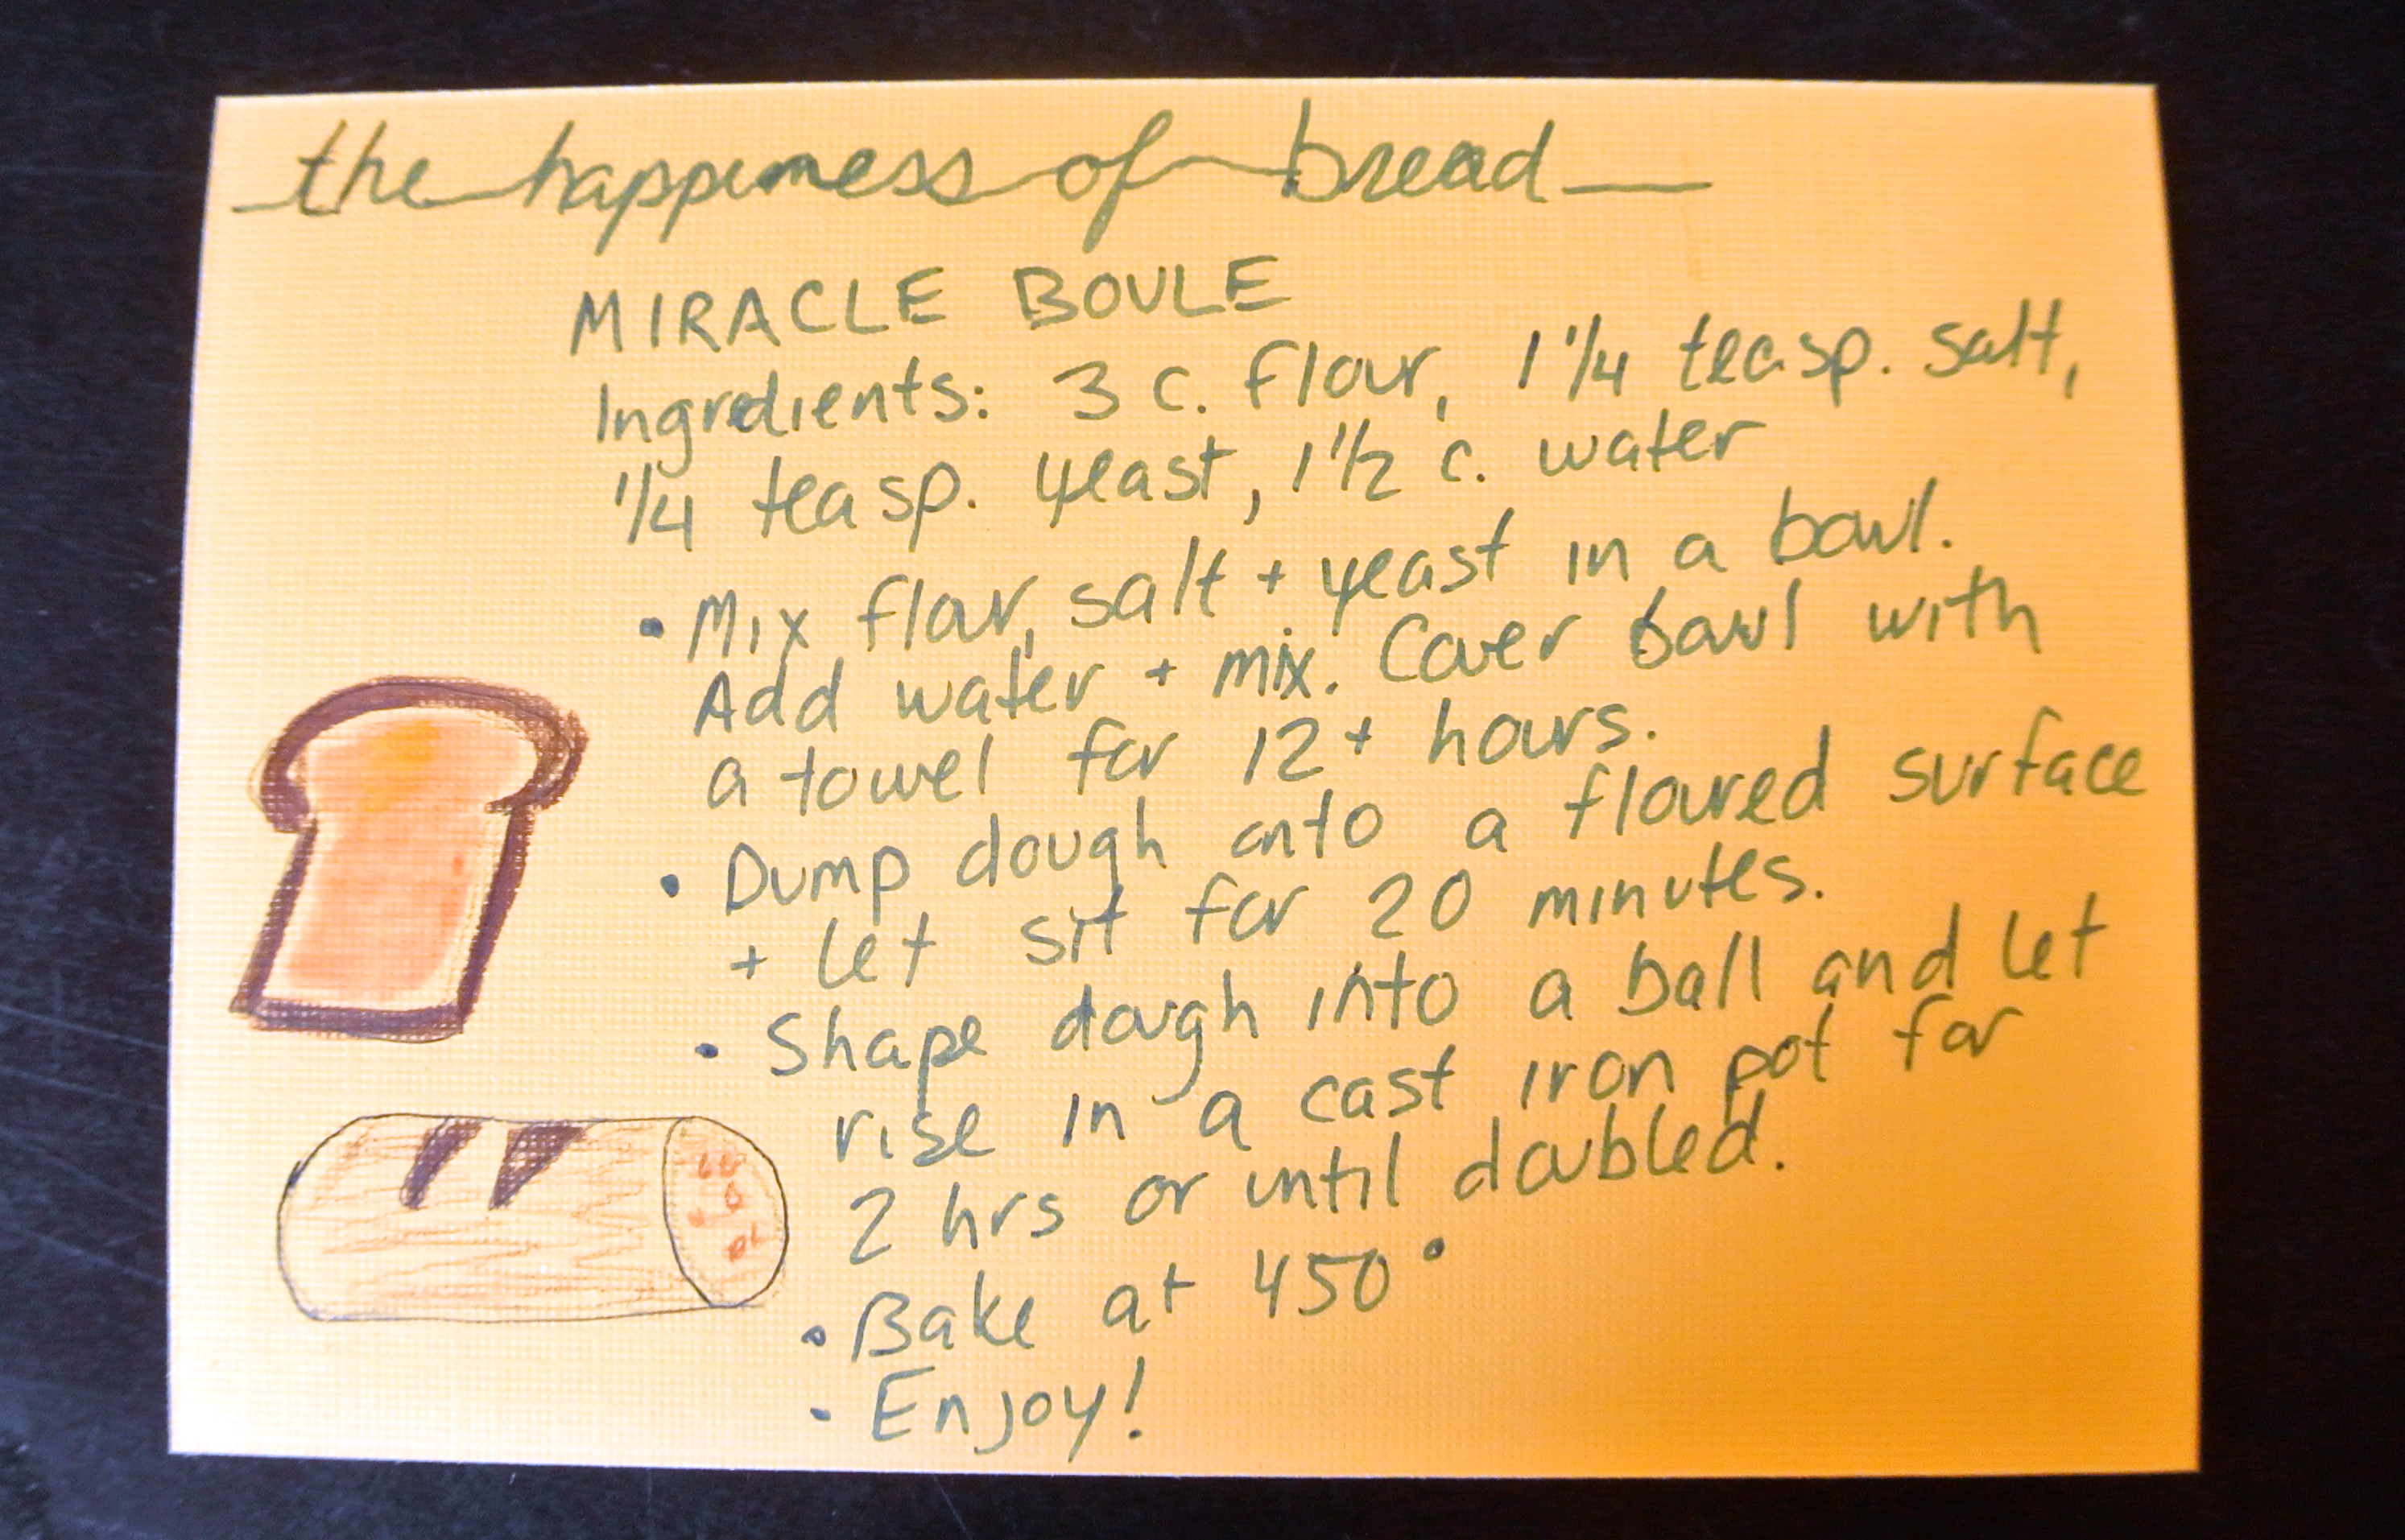 the happiness of bread
MIRACLE BOULE
Ingredients: 3 c. flour, 1 1/4 teasp. salt,
1/4 teasp. yeast, 1 1/2 c. water
• Mix flour, salt + yeast in a bowl.
Add water + mix. Cover bowl with
a towel for 12+ hours.
• Dump dough onto a floured surface
+ let sit for 20 minutes.
• Shape dough into a ball and let
rise in a cast iron pot for
2 hrs or until doubled.
• Bake at 450°
• Enjoy!